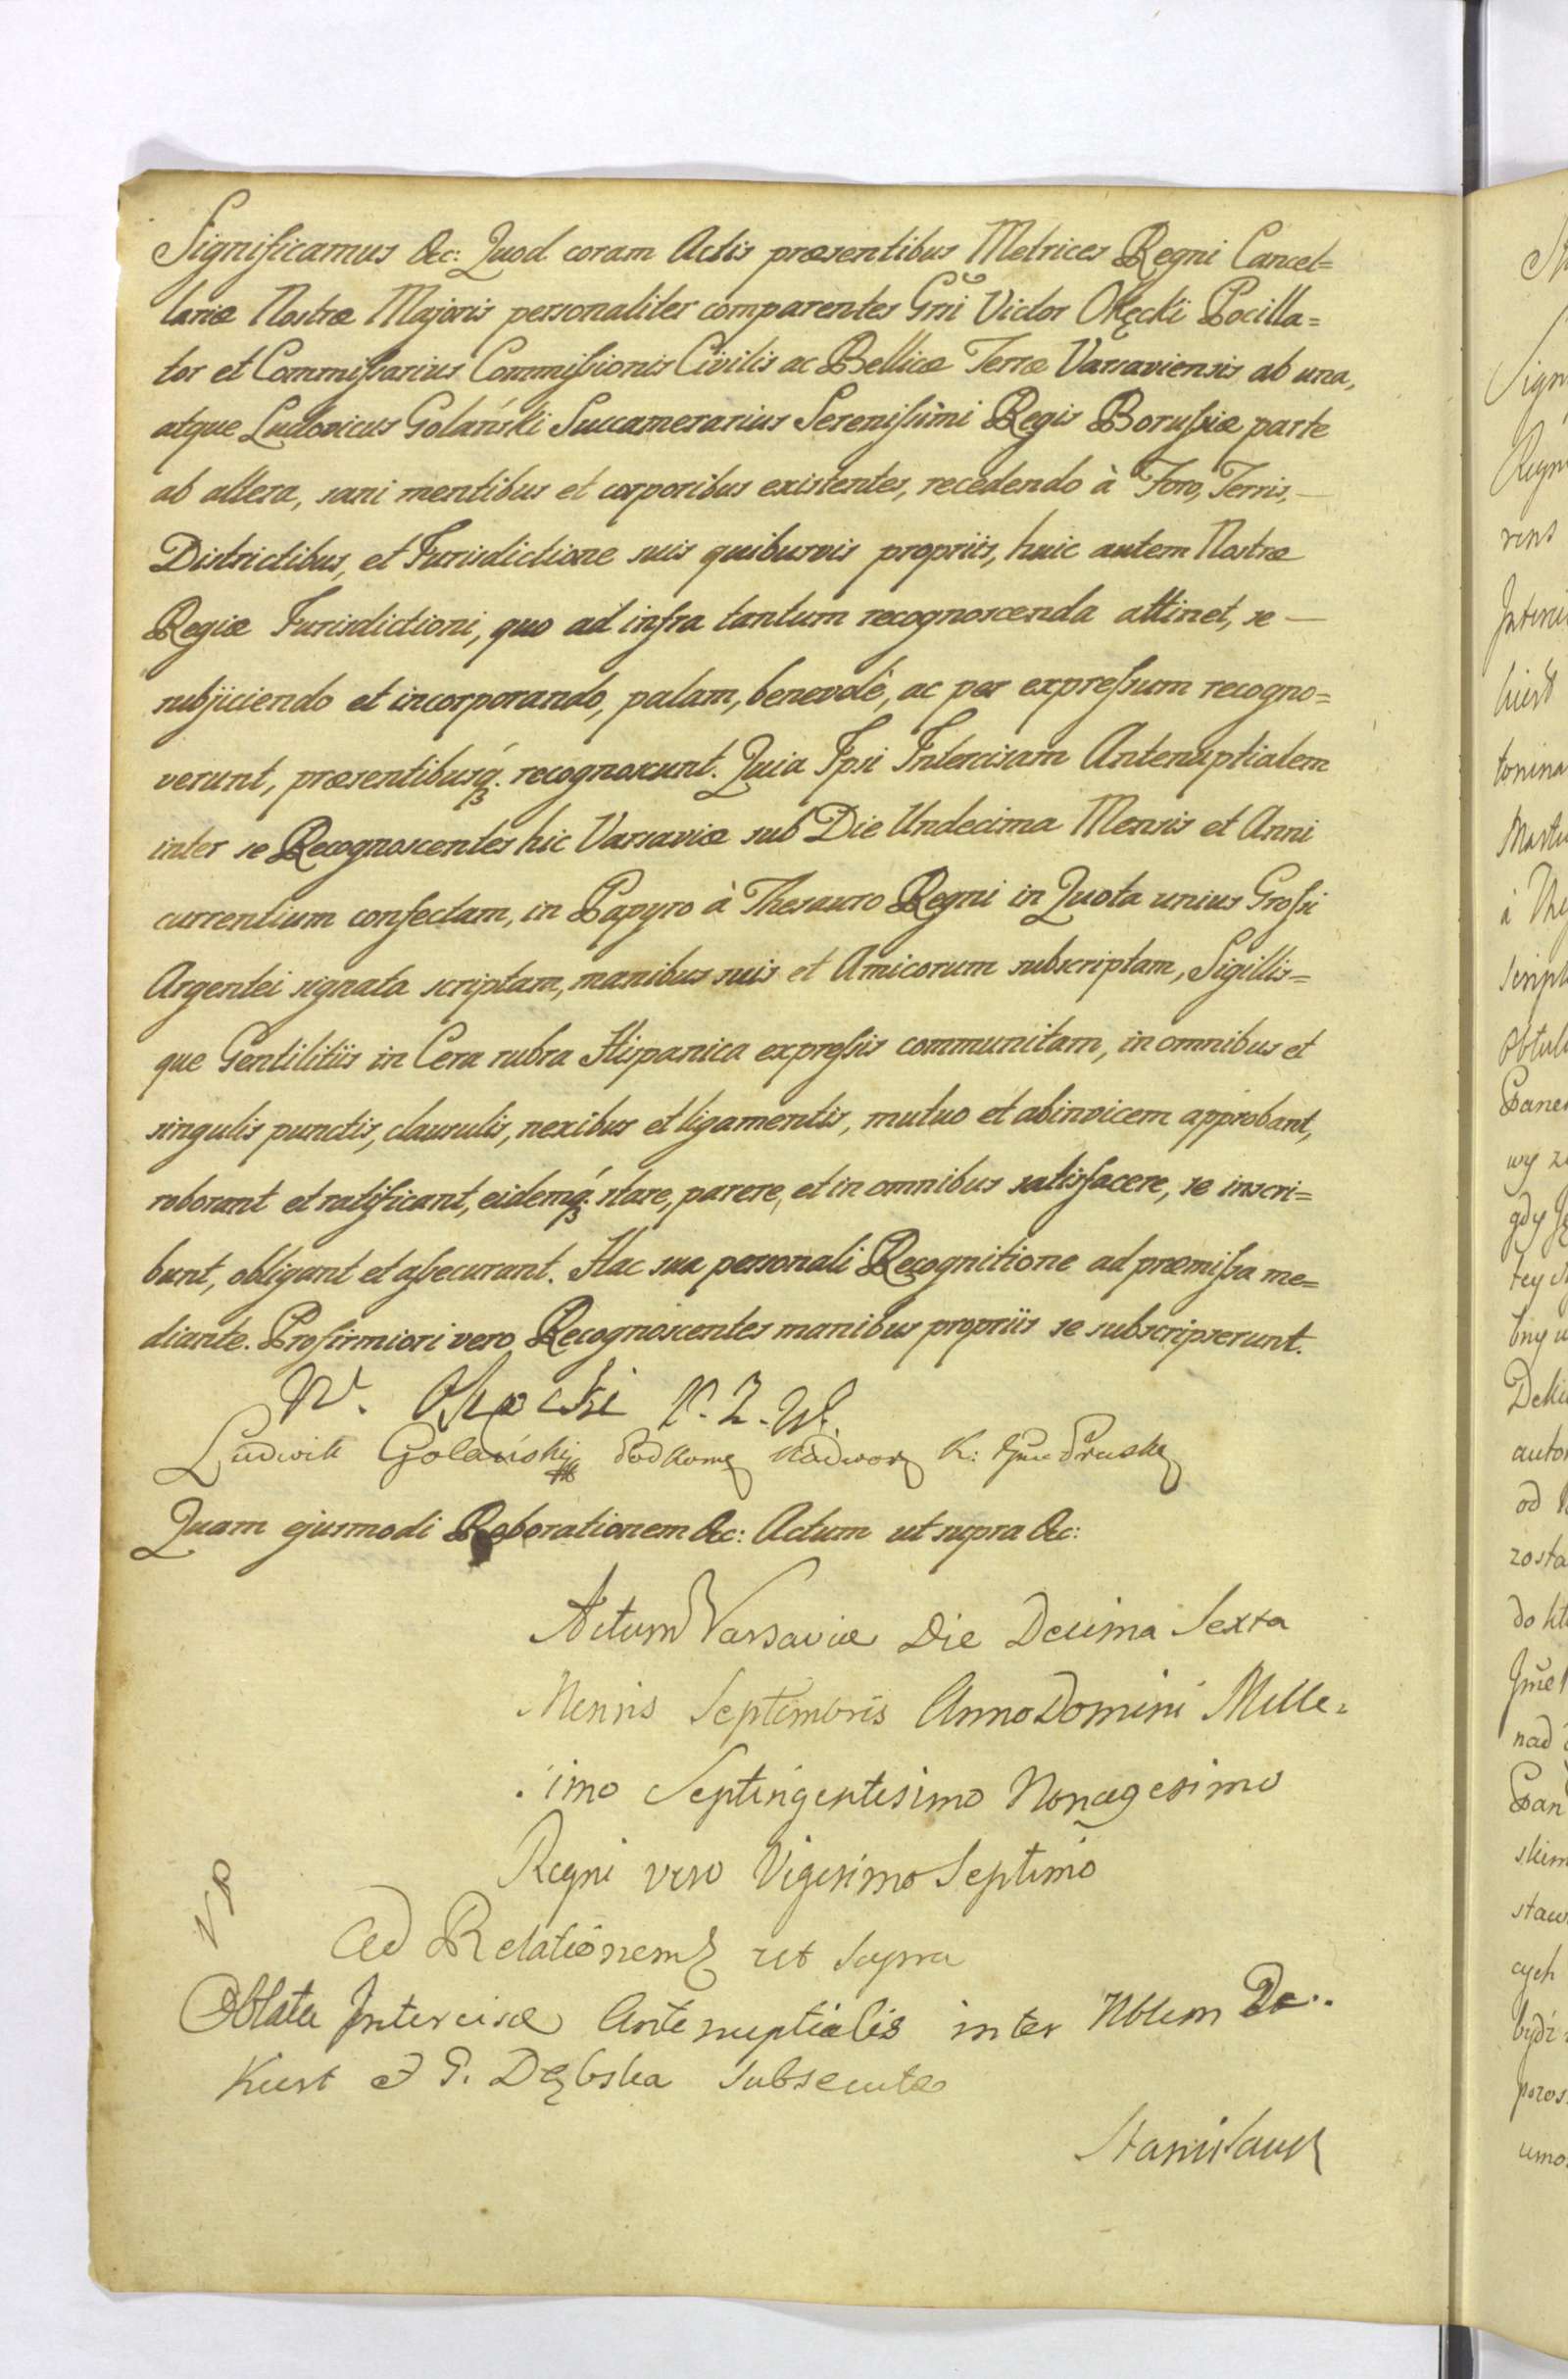 Significamus &c: Quod coram Actis præsentibus Metrices Regni Cancel=
lariæ Nostræ Majoris personaliter comparentes Gñi Victor Okęcki Pocilla=
tor et Commissarius Commissionis Civilis ac Bellicæ Terræ Varsaviensis ab una,
atque Ludovicus Golański Succamerarius Serenissimi Regis Borussiæ parte
ab altera, sani mentibus et corporibus existentes, recedendo à Foro, Terris, —
Districtibus, et Jurisdictione suis quibusvis propriis, huic autem Nostræ
Regiæ Jurisdictioni, quo ad infra tantum recognoscenda attinet, se —
subjiciendo et incorporando, palam, benevolè, ac per expressum recogno=
verunt, præsentibusq́. recognoscunt. Quia Ipsi Intercisam Antenuptialem
inter se Recognoscentes hic Varsaviæ sub Die Undecima Mensis et Anni
currentium confectam, in Papyro à Thesauro Regni in Quota unius Grossi
Argentei signata scriptam, manibus suis et Amicorum subscriptam, Sigillis=
que Gentilitiis in Cera rubra Hispanica expressis communitam, in omnibus et
singulis punctis, clausulis, nexibus et ligamentis, mutuo et abinvicem approbant,
roborant et ratificant, eidemq́. stare, parere, et in omnibus satisfacere, se inscri=
bunt, obligant et assecurant. Hac sua personali Recognitione ad præmissa me=
diante. Pro firmiori vero Recognoscentes manibus propriis se subscripserunt.
W. Okęcki P. Z. W.
Ludwik Golański Podkom Nadwor K: Prusk
Quam ejusmodi Roborationem &c: Actum ut supra &c:
Actum Varsaviæ Die Decima Sexta
Mensis Septembris Anno Domini Mille=
simo Septingentesimo Nonagesimo
Regni vero Vigesimo Septimo
Ad Relationem ut supra
Oblata Intercisæ Antenuptialis inter Nblem
Kurt & G. Dębska subsecuta
Stanislaus